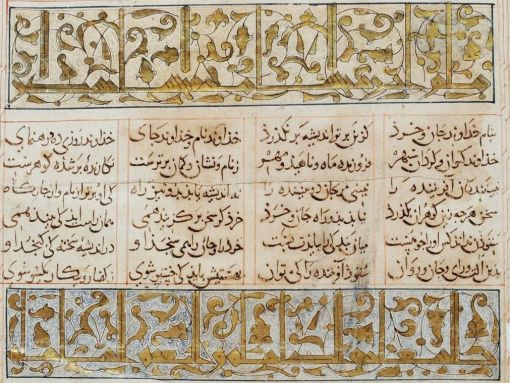 بنام خداوند جان و خرد کزین برتر اندیشه بر نگذرد خداوند نام و خداوند جای خداوند روزی ده رهنمای
خداوند کیوان و گردان سپهر فروزنده ماه و ناهید و مهر ز نام و نشان و گمان برترست نگارنده بر شده گوهرست
ببینندگان آفریننده را نبینی مرنجان دو بیننده را نه اندیشه یابد بدو نیز راه کی او برتر از نام و از جایگاه
سخن هرچه زین گوهران بگذرد نیابد بدو راه جان و خرد خرد گر سخن برگزیند همی همان را ستاید کی بیند همی
ستودن نداند کس او را چو هست میان بندگی را ببایدت بست خرد را و جان را همی سنجد او در اندیشه سخته کی گنجد او
بدین آلت رای و جان و روان ستود آفریننده را کی توان بهستیش باید کی خستو شوی ز گفتار و پیکار یکسو شوی